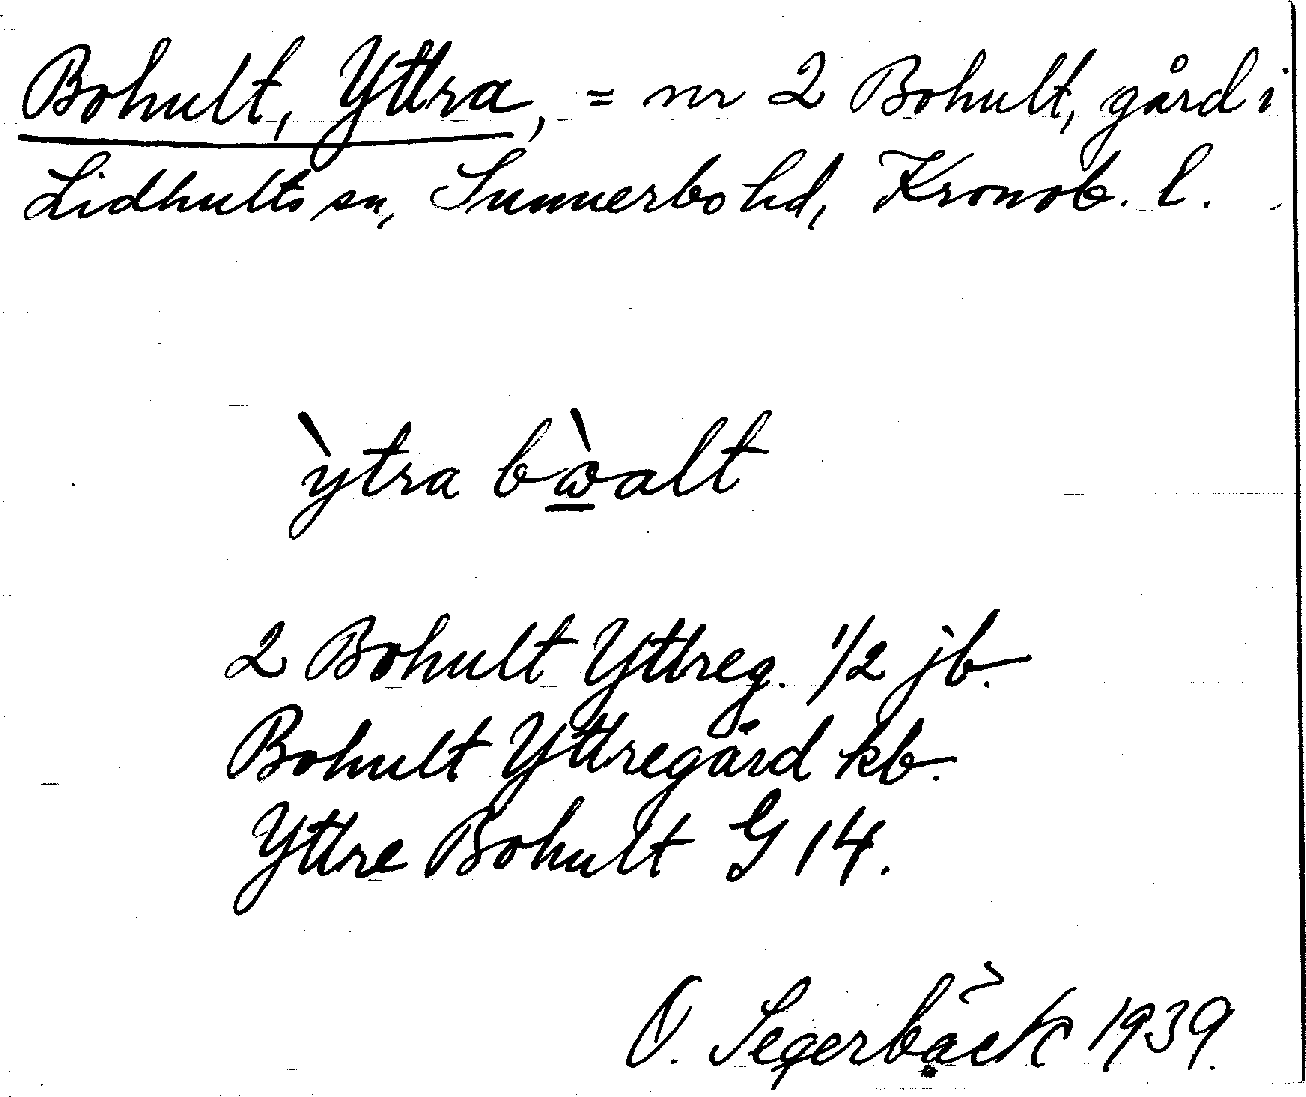 Bohult, Yttra, = nr 2 Bohult, gård i
Lidhults sn, Sunnerbo hd, Kronob. l.
ỳtra bὼ̲alt
2 Bohult Yttreg. 1/2 jb.
Bohult Yttregård kb.
Yttre Bohult G 14.
O. Segerbäck 1939.